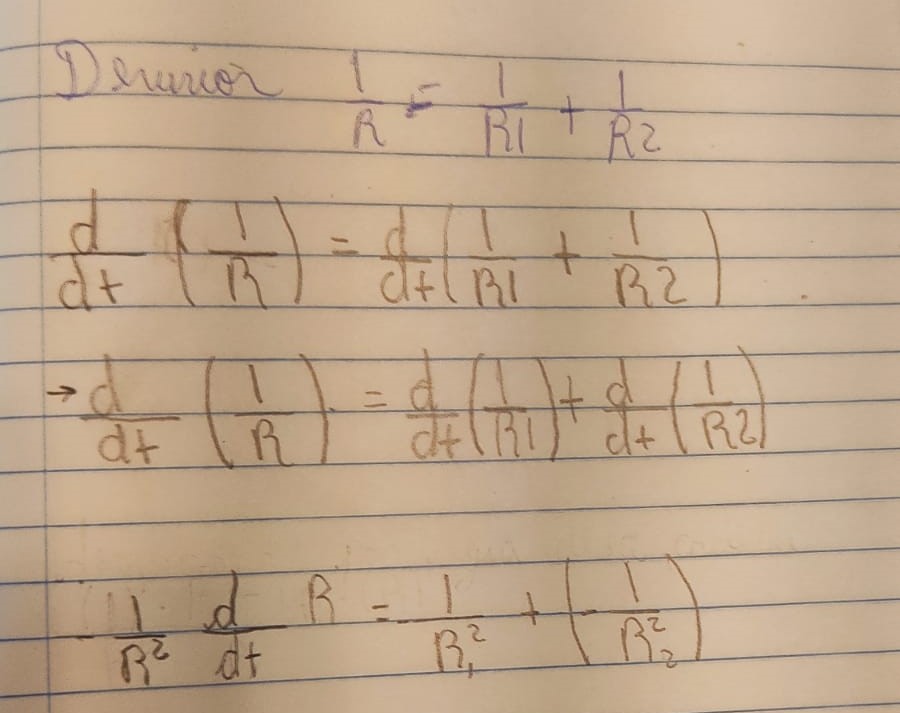 Derivior 1/R = 1/R1 + 1/R2
d/dt (1/R) = d/dt (1/R1 + 1/R2)
→ d/dt (1/R) = d/dt (1/R1) + d/dt (1/R2)
- 1/R² d/dt R = - 1/R₁² + (- 1/R₂²)